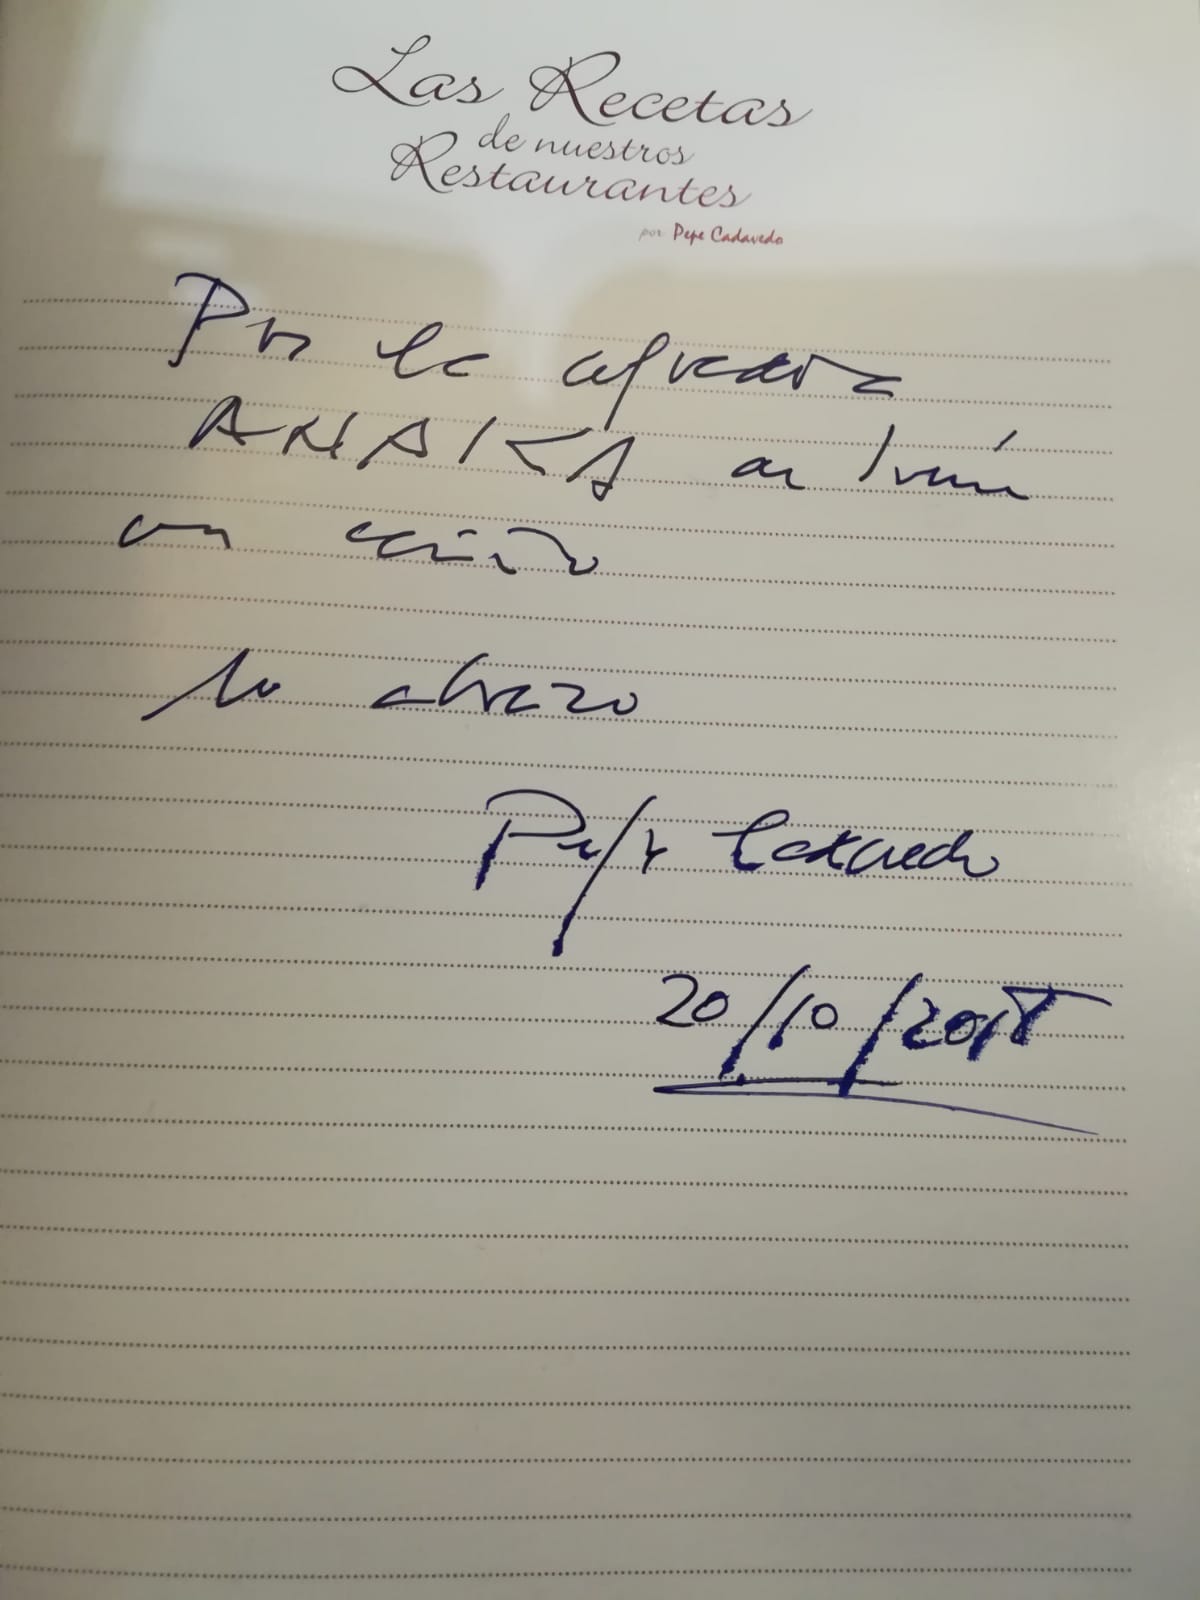 Las Recetas
de nuestros
Restaurantes
por Pepe Cadavedo
Por la
ANAIKA en Irún
con cariño
Un abrazo
Pepe Cadavedo
20/10/2018